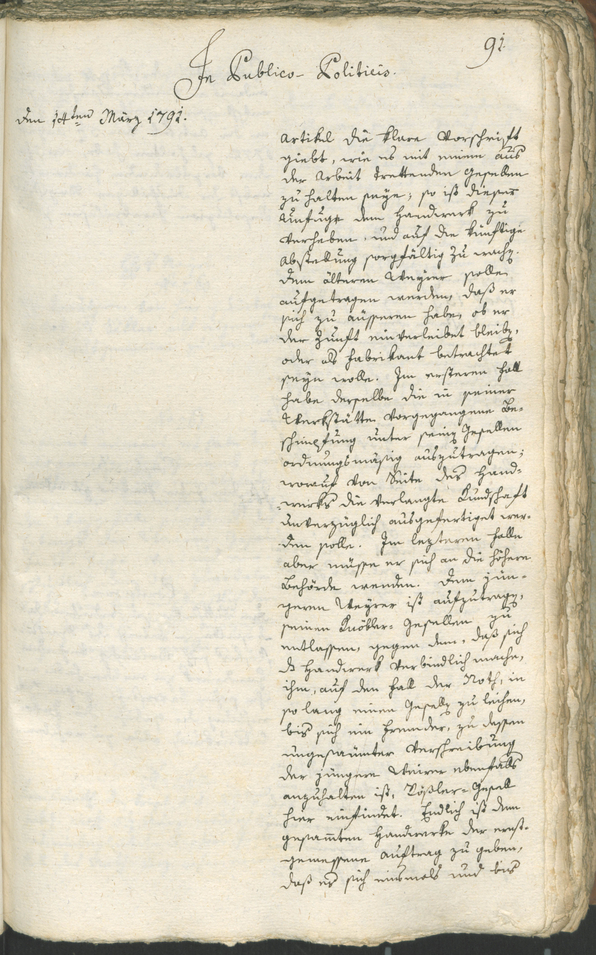 91
In Publico-Politicis.
den 14ten März 1791.
Artikel die klare Vorschrift
giebt, wie es mit einem aus
der Arbeit trettenden Gesellen
zu halten seye, so ist dieser
Unfuge dem Handwerk zu
verheben, und auf die künftige
Abstellung sorgfältig zu wach.
Dem älteren Weyrer solle
aufgetragen werden, daß er
sich zu äusseren habe, ob er
der Zunft einverleibet bleib,
oder als Fabrikant betrachtet
seyn wolle. Im ersteren Fall
habe derselbe die in seiner
Werkstätte vorgegangene Be-
schimpfung unter sein Gesellen
ordnungsmäsig auszutragen;
worauf von Seite des Hand-
werks die verlangte Kundschaft
unverzüglich ausgefertiget wer-
den solle. Im lezteren Falle
aber müsse er sich an die höhere
Behörde wenden. Dem jün-
geren Weyrer ist aufzutrag,
seinen Knöbler-Gesellen zu
entlassen, gegen dem, daß sich
ds Handwerk verbindlich mache,
ihm, auf den Fall der Noth, in
so lang einen Gesell zu leihen,
bis sich ein fremder, zu dessen
ungesaumter Verschreibung
der jüngere Weirer ebenfalls
anzuhalten ist, Gesell
hier einfindet. Endlich ist dem
gesam̄ten Handwerke der ernst-
gemessene Auftrag zu geben,
daß es sich niemals und bis